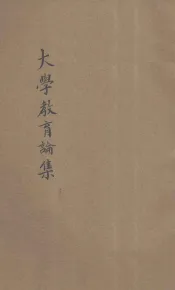 大學教育論集